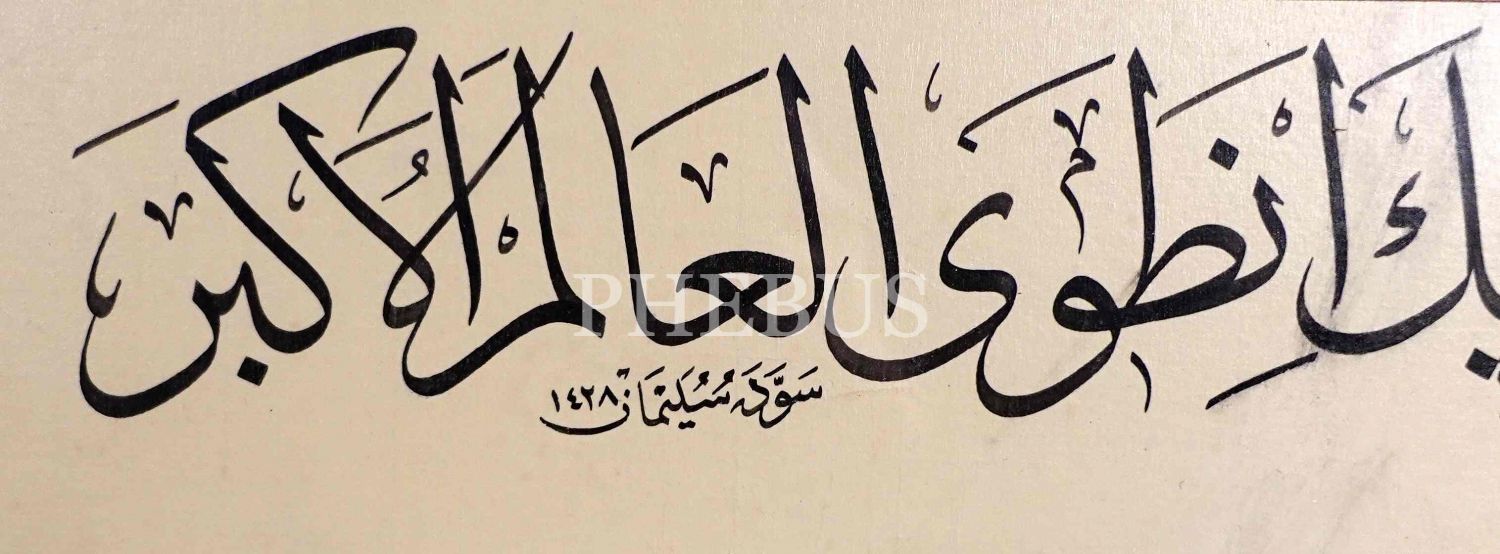 يك انطوى العالم الأكبر
سوده سليمان ١٤٢٨
PHEBUS